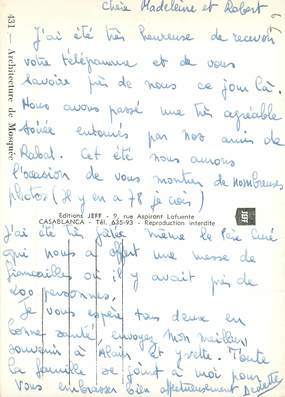 Chère Madeleine et Robert
J'ai été très heureuse de recevoir
votre télégramme et de vous
savoir près de nous ce jour là.
Nous avons passé une très agréable
soirée entourés par nos amis de
Rabat. Cet été nous aurons
l'occasion de vous montrer de nombreuses
photos (Il y en a 78 je crois)
431 — Architecture de Mosquée
Editions JEFF - 9, rue Aspirant Lafuente
CASABLANCA - Tél. 635-93 - Reproduction interdite
J'ai été très gâtée même le Père Curé
qui nous a offert une messe de
fiançailles où il y avait près de
200 personnes,
Je vous espère tous deux en
bonne santé, envoyez mon meilleur
souvenir à Alain et Yvette. Toute
la famille se joint à moi pour
vous embrasser bien affectueusement